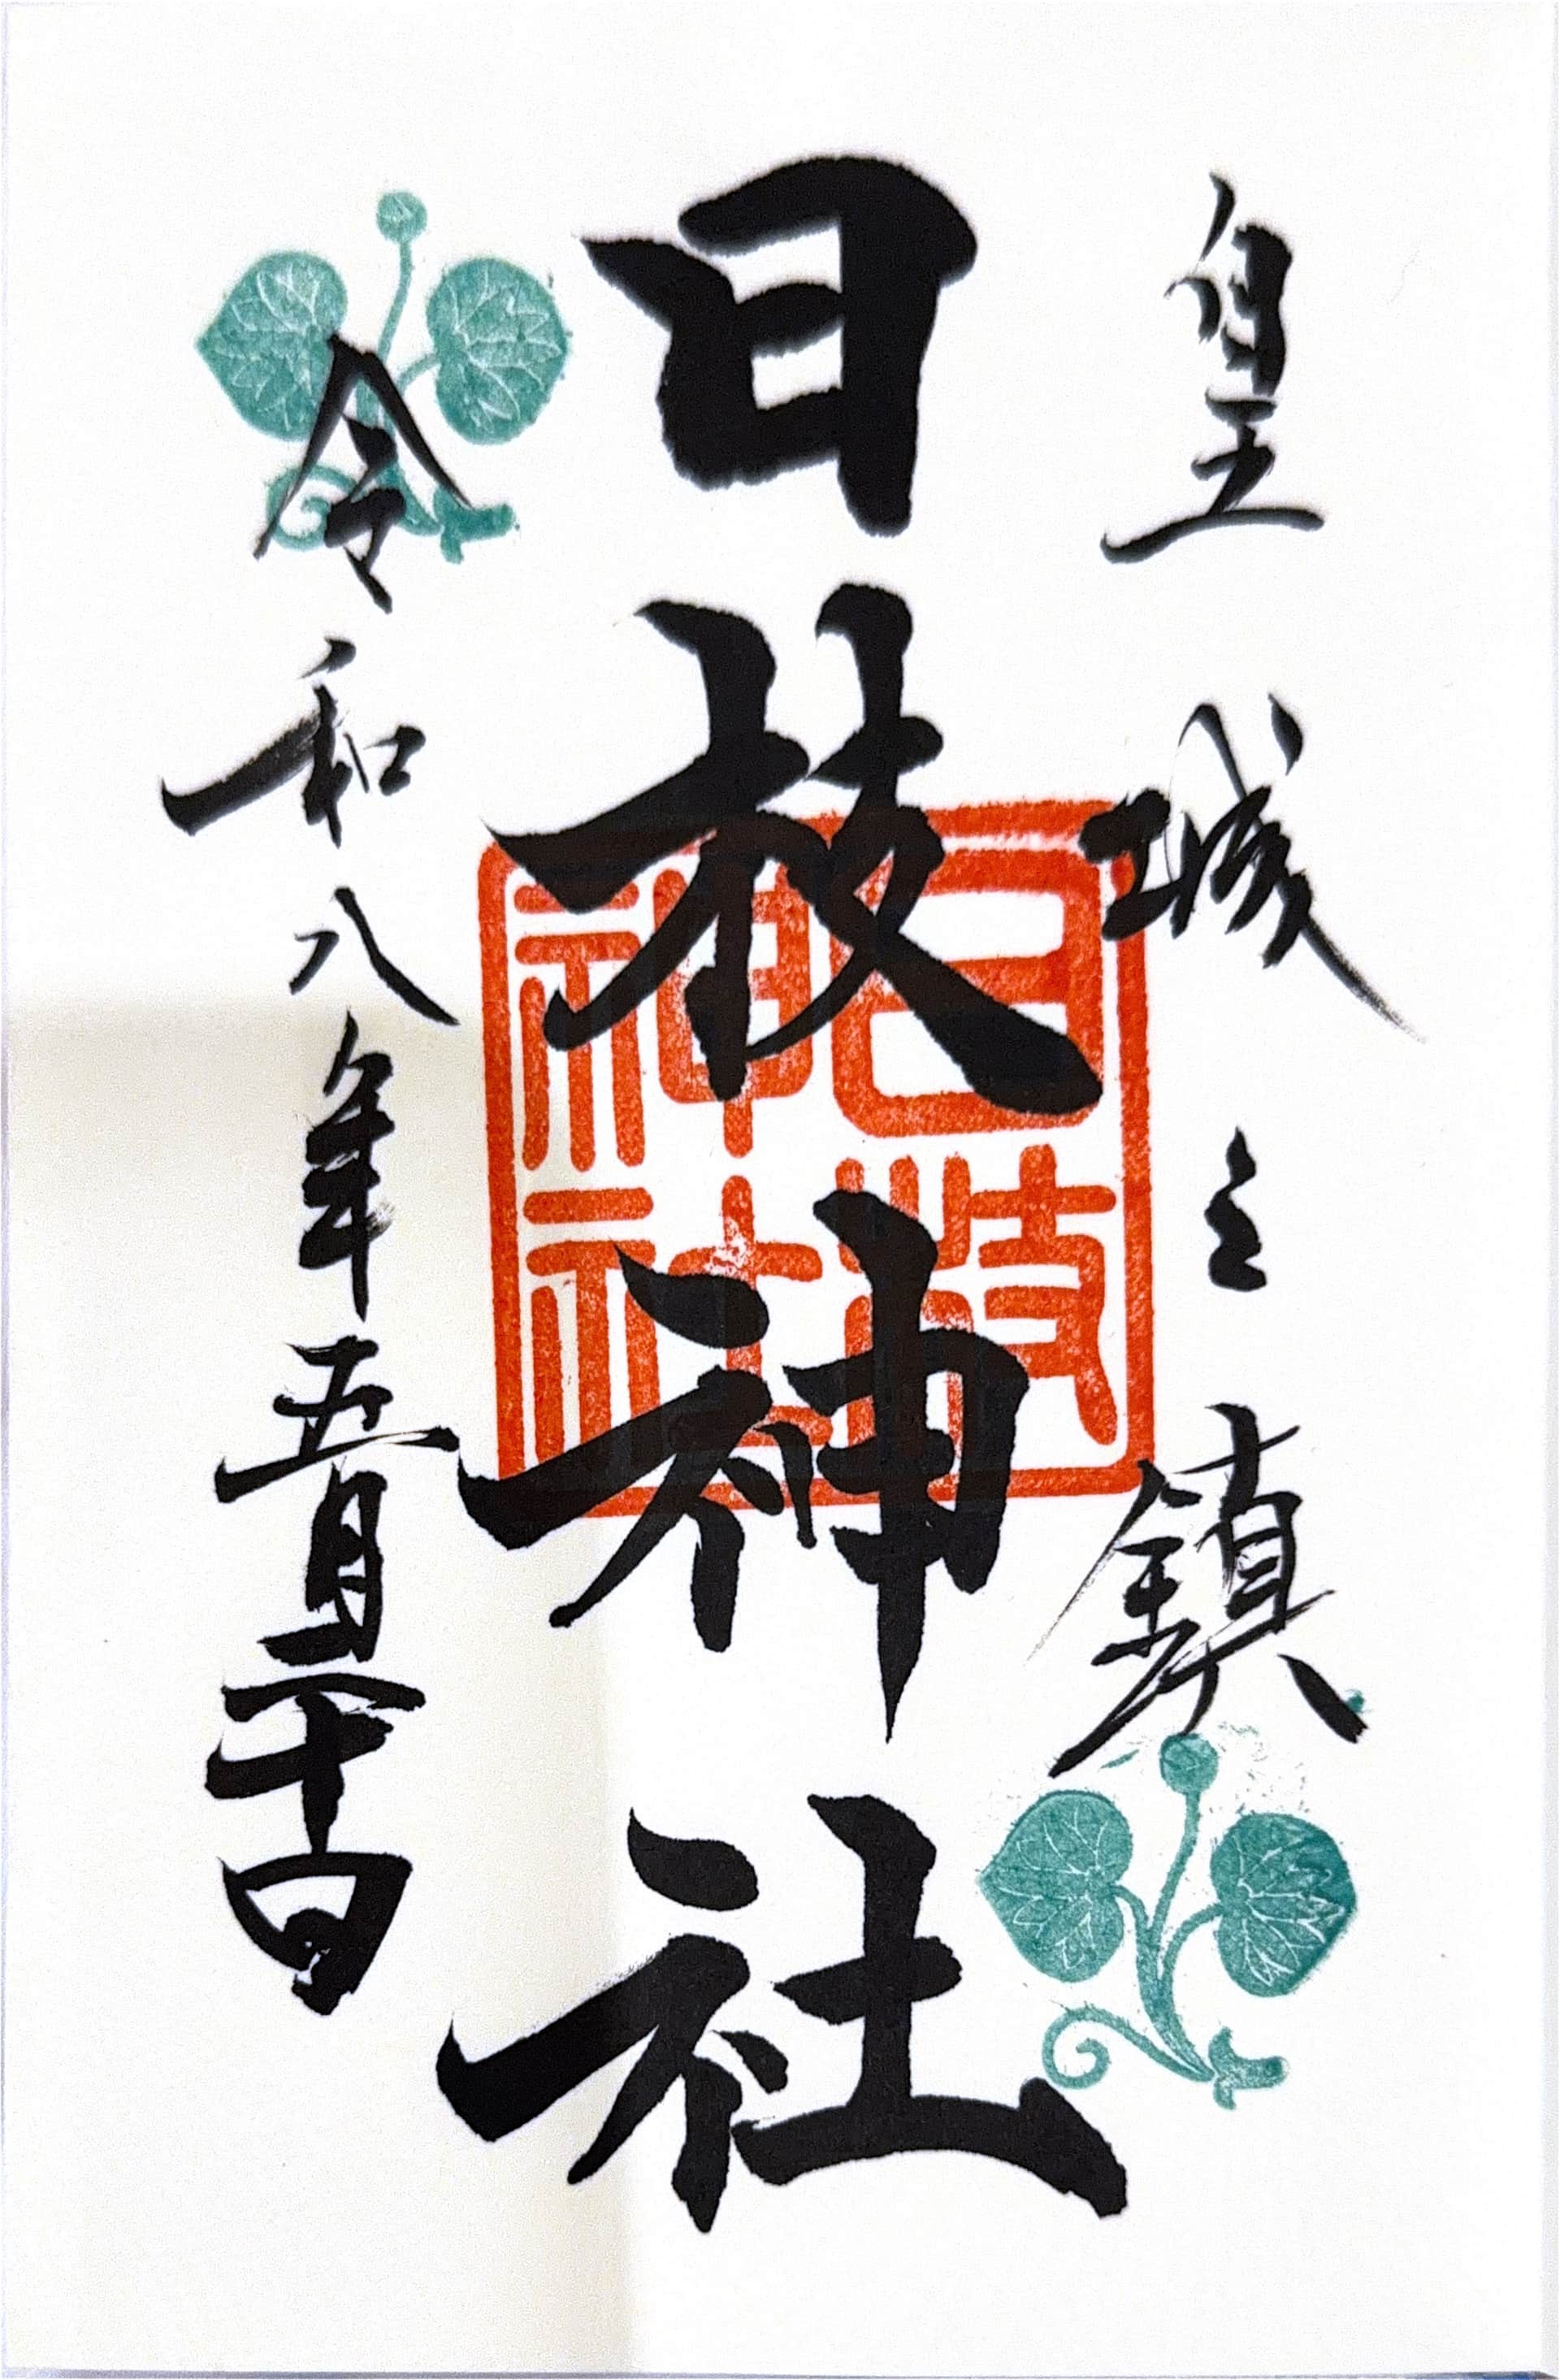 皇城之鎮
日枝神社
日枝
神社
令和八年五月二十日